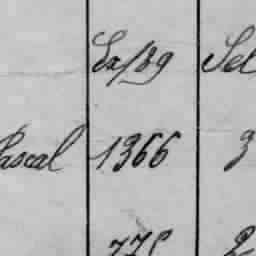 Ex/89 Sel
Pascal 1366 3
775 2